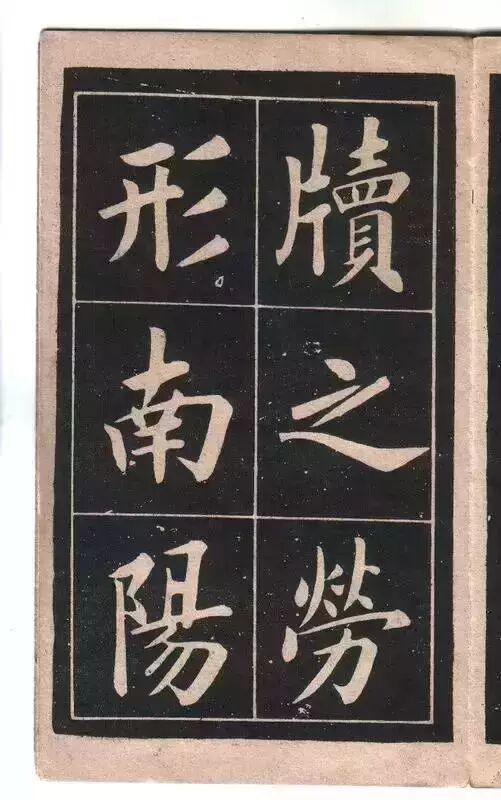 牘之勞
形。南陽